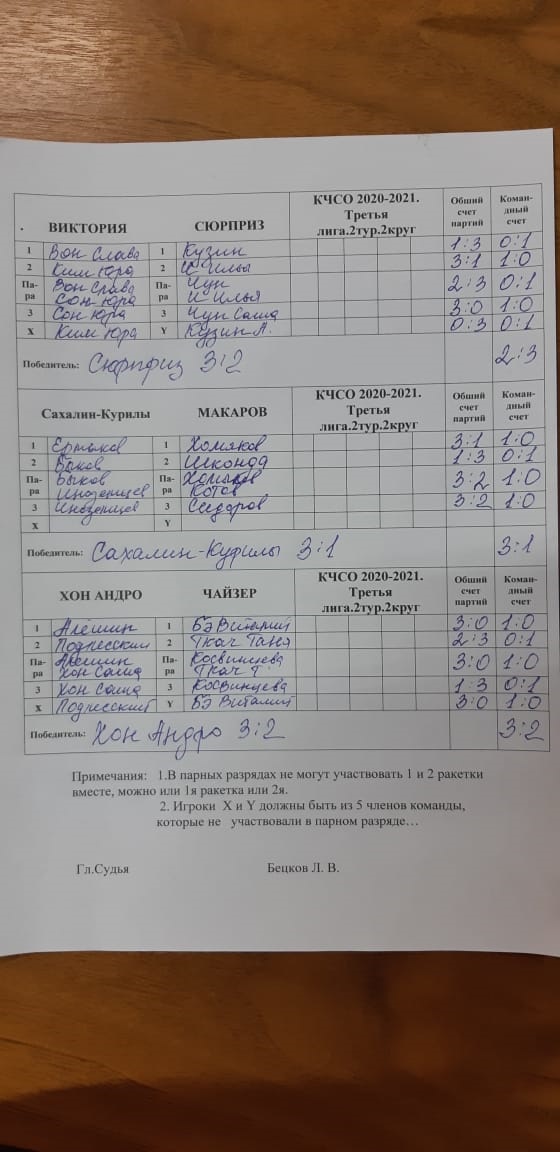 . ВИКТОРИЯ СЮРПРИЗ КЧСО 2020-2021. Третья лига.2тур.2круг Общий счет партий Коман-дный счет
1 Вон Слава 1 Кузин 1:3 0:1
2 Ким Юра 2 И Илья 3:1 1:0
Па-ра Вон Слава Сон Юра Па-ра Чун И Илья 2:3 0:1
3 Сон Юра 3 Чун Саша 3:0 1:0
X Ким Юра Y Кузин А. 0:3 0:1
Победитель: Сюрприз 3:2 2:3
Сахалин-Курилы МАКАРОВ КЧСО 2020-2021. Третья лига.2тур.2круг Общий счет партий Коман-дный счет
1 1 Хомяков 3:1 1:0
2 Быков 2 1:3 0:1
Па-ра Быков Иноземцев Па-ра Хомяков Котов 3:2 1:0
3 Иноземцев 3 Сидоров 3:2 1:0
X Y
Победитель: Сахалин-Курилы 3:1 3:1
ХОН АНДРО ЧАЙЗЕР КЧСО 2020-2021. Третья лига.2тур.2круг Общий счет партий Коман-дный счет
1 Алешин 1 Бэ Виталий 3:0 1:0
2 Подлесский 2 Ткач Таня 2:3 0:1
Па-ра Алешин Хон Саша Па-ра Косвинцева Ткач Т. 3:0 1:0
3 Хон Саша 3 Косвинцева 1:3 0:1
X Подлесский Y Бэ Виталий 3:0 1:0
Победитель: Хон Андро 3:2 3:2
Примечания: 1.В парных разрядах не могут участвовать 1 и 2 ракетки
вместе, можно или 1я ракетка или 2я.
2. Игроки X и Y должны быть из 5 членов команды,
которые не участвовали в парном разряде…
Гл.Судья Бецков Л. В.